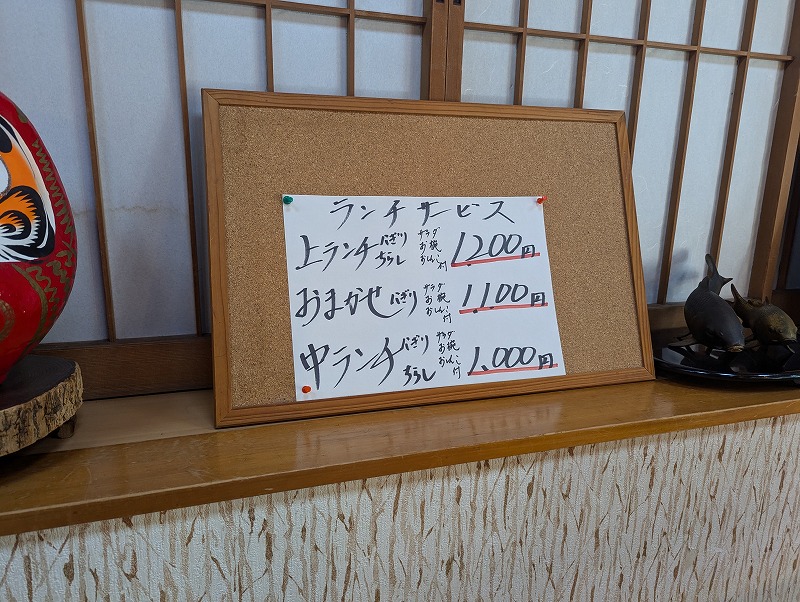 ランチサービス
上ランチ にぎり ちらし サラダ お椀 おしんこ 付 1,200円
おまかせ にぎり サラダ お椀 おしんこ 付 1,100円
中ランチ にぎり ちらし サラダ お椀 おしんこ 付 1,000円